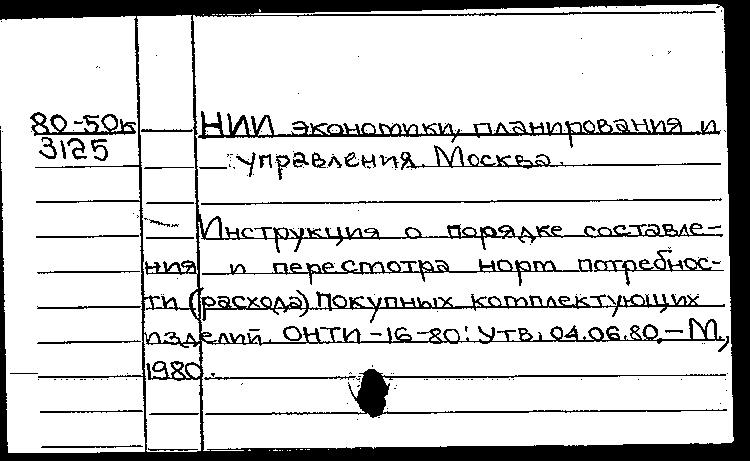 80-50к
3125
НИИ экономики, планирования и
управления. Москва.
Инструкция о порядке составле-
ния и пересмотра норм потребнос-
ти (расхода) покупных комплектующих
изделий. ОНТИ-16-80: Утв. 04.06.80.-М.,
1980.